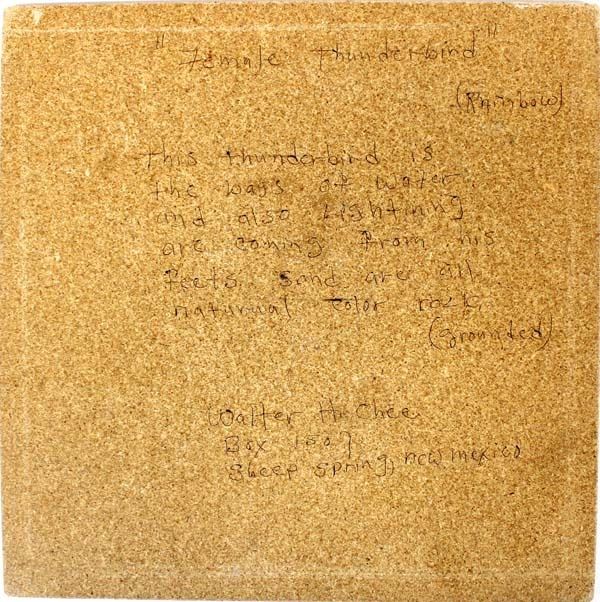 "Female thunderbird"
(Rainbow)
this thunderbird is
the ways of water.
and also Lightinng
are coming from his
feets sand are all
naturual color rock
(grounded)
Walter H. Chee
Box 1007
Sheep Spring, new mexico